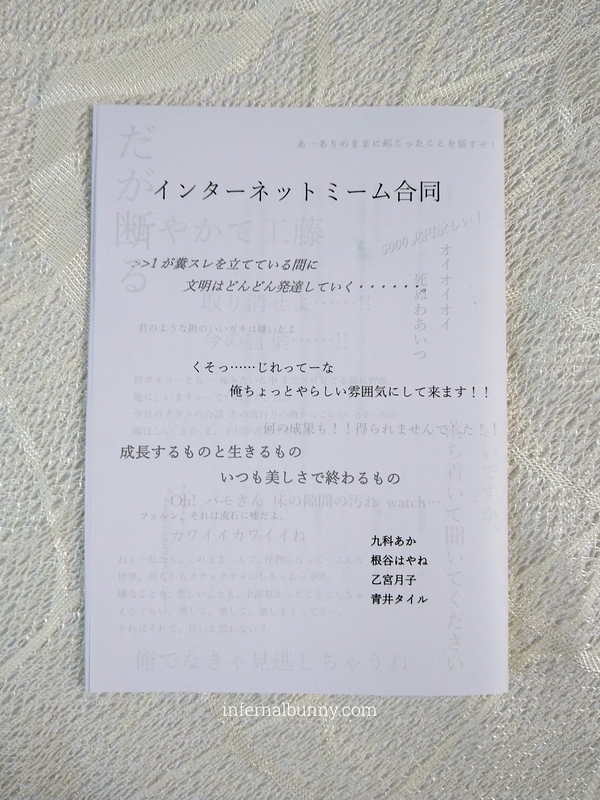 だが断る
あ…ありのままに起こったことを話すぜ！
インターネットミーム合同
やかて工藤
5000兆円欲しい！
>>1が糞スレを立てている間に
文明はどんどん発達していく・・・・・・。
オイオイオイ
死ぬわあいつ
取り消せよ……!!
今の言葉……!!
君のような勘のいいガキは嫌いだよ
くそっ……じれってーな
俺ちょっとやらしい雰囲気にして来ます！！
何の成果も！！得られませんでした！！
成長するものと生きるもの
いつも美しさで終わるもの
落ち着いて聞いてください
いいですか。
Oh! パモさん 床の隙間の汚れ watch…
フェルン、それは流石に嘘だよ。
カワイイカワイイね
九科あか
根谷はやね
乙宮月子
青井タイル
それはそれで、良いと思わない？
俺でなきゃ見逃しちゃうね
infernalbunny.com